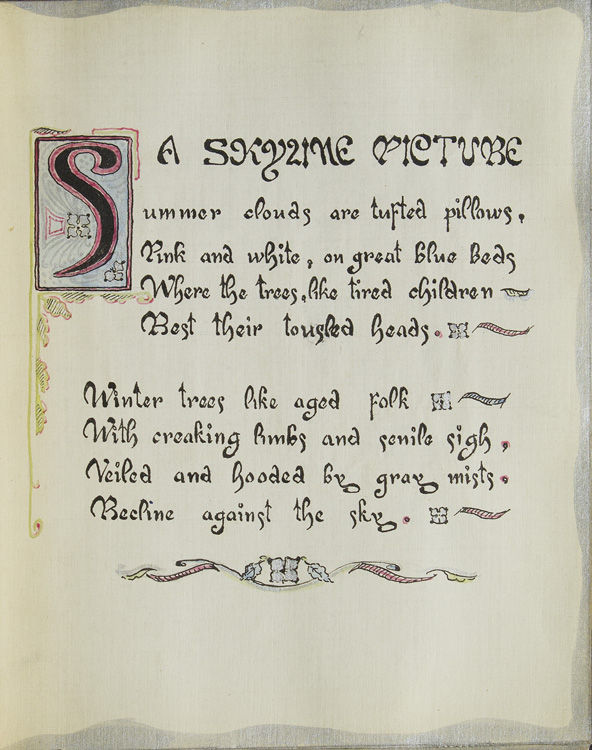 A SKYLINE PICTURE
Summer clouds are tufted pillows,
Pink and white, on great blue beds
Where the trees, like tired children
Rest their tousled heads.
Winter trees like aged folk
With creaking limbs and senile sigh,
Veiled and hooded by gray mists.
Recline against the sky.